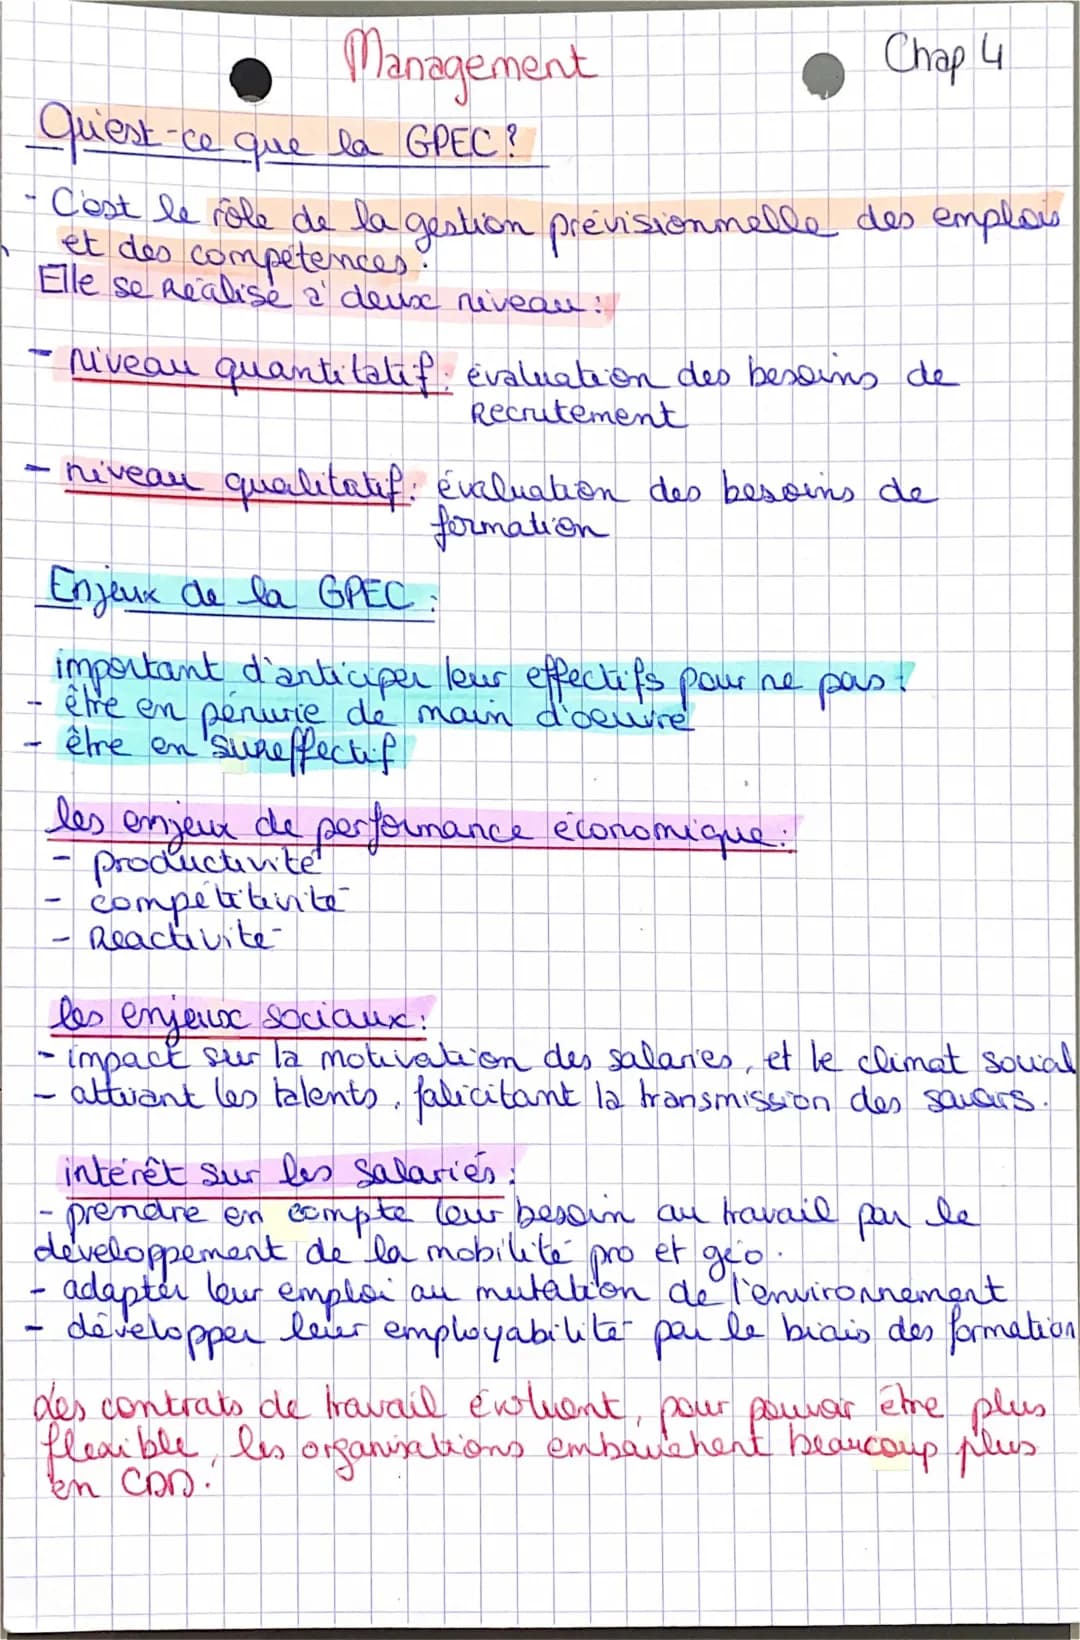 Management
Chap 4
Qu'est-ce que la GPEC ?
- C'est le rôle de la gestion prévisionnelle des emplois
et des compétences.
Elle se réalise à deux niveau :
- niveau quantitatif : évaluation des besoins de
recrutement
- niveau qualitatif : évaluation des besoins de
formation
Enjeux de la GPEC :
important d'anticiper leur effectifs pour ne pas :
- être en pénurie de main d'oeuvre
- être en sureffectif
les enjeux de performance économique :
- productivité
- compétitivité
- Reactivité
les enjeux sociaux :
- impact sur la motivation des salariés, et le climat social
- attirant les talents, falicitant la transmission des savoirs.
intérêt sur les salariés :
- prendre en compte leur besoin au travail par le
développement de la mobilité pro et géo.
- adapter leur emploi au mutation de l'environnement
- développer leur employabilité par le biais des formation
des contrats de travail évoluent, pour pouvoir être plus
flexible, les organisations embauchent beaucoup plus
en CDD.